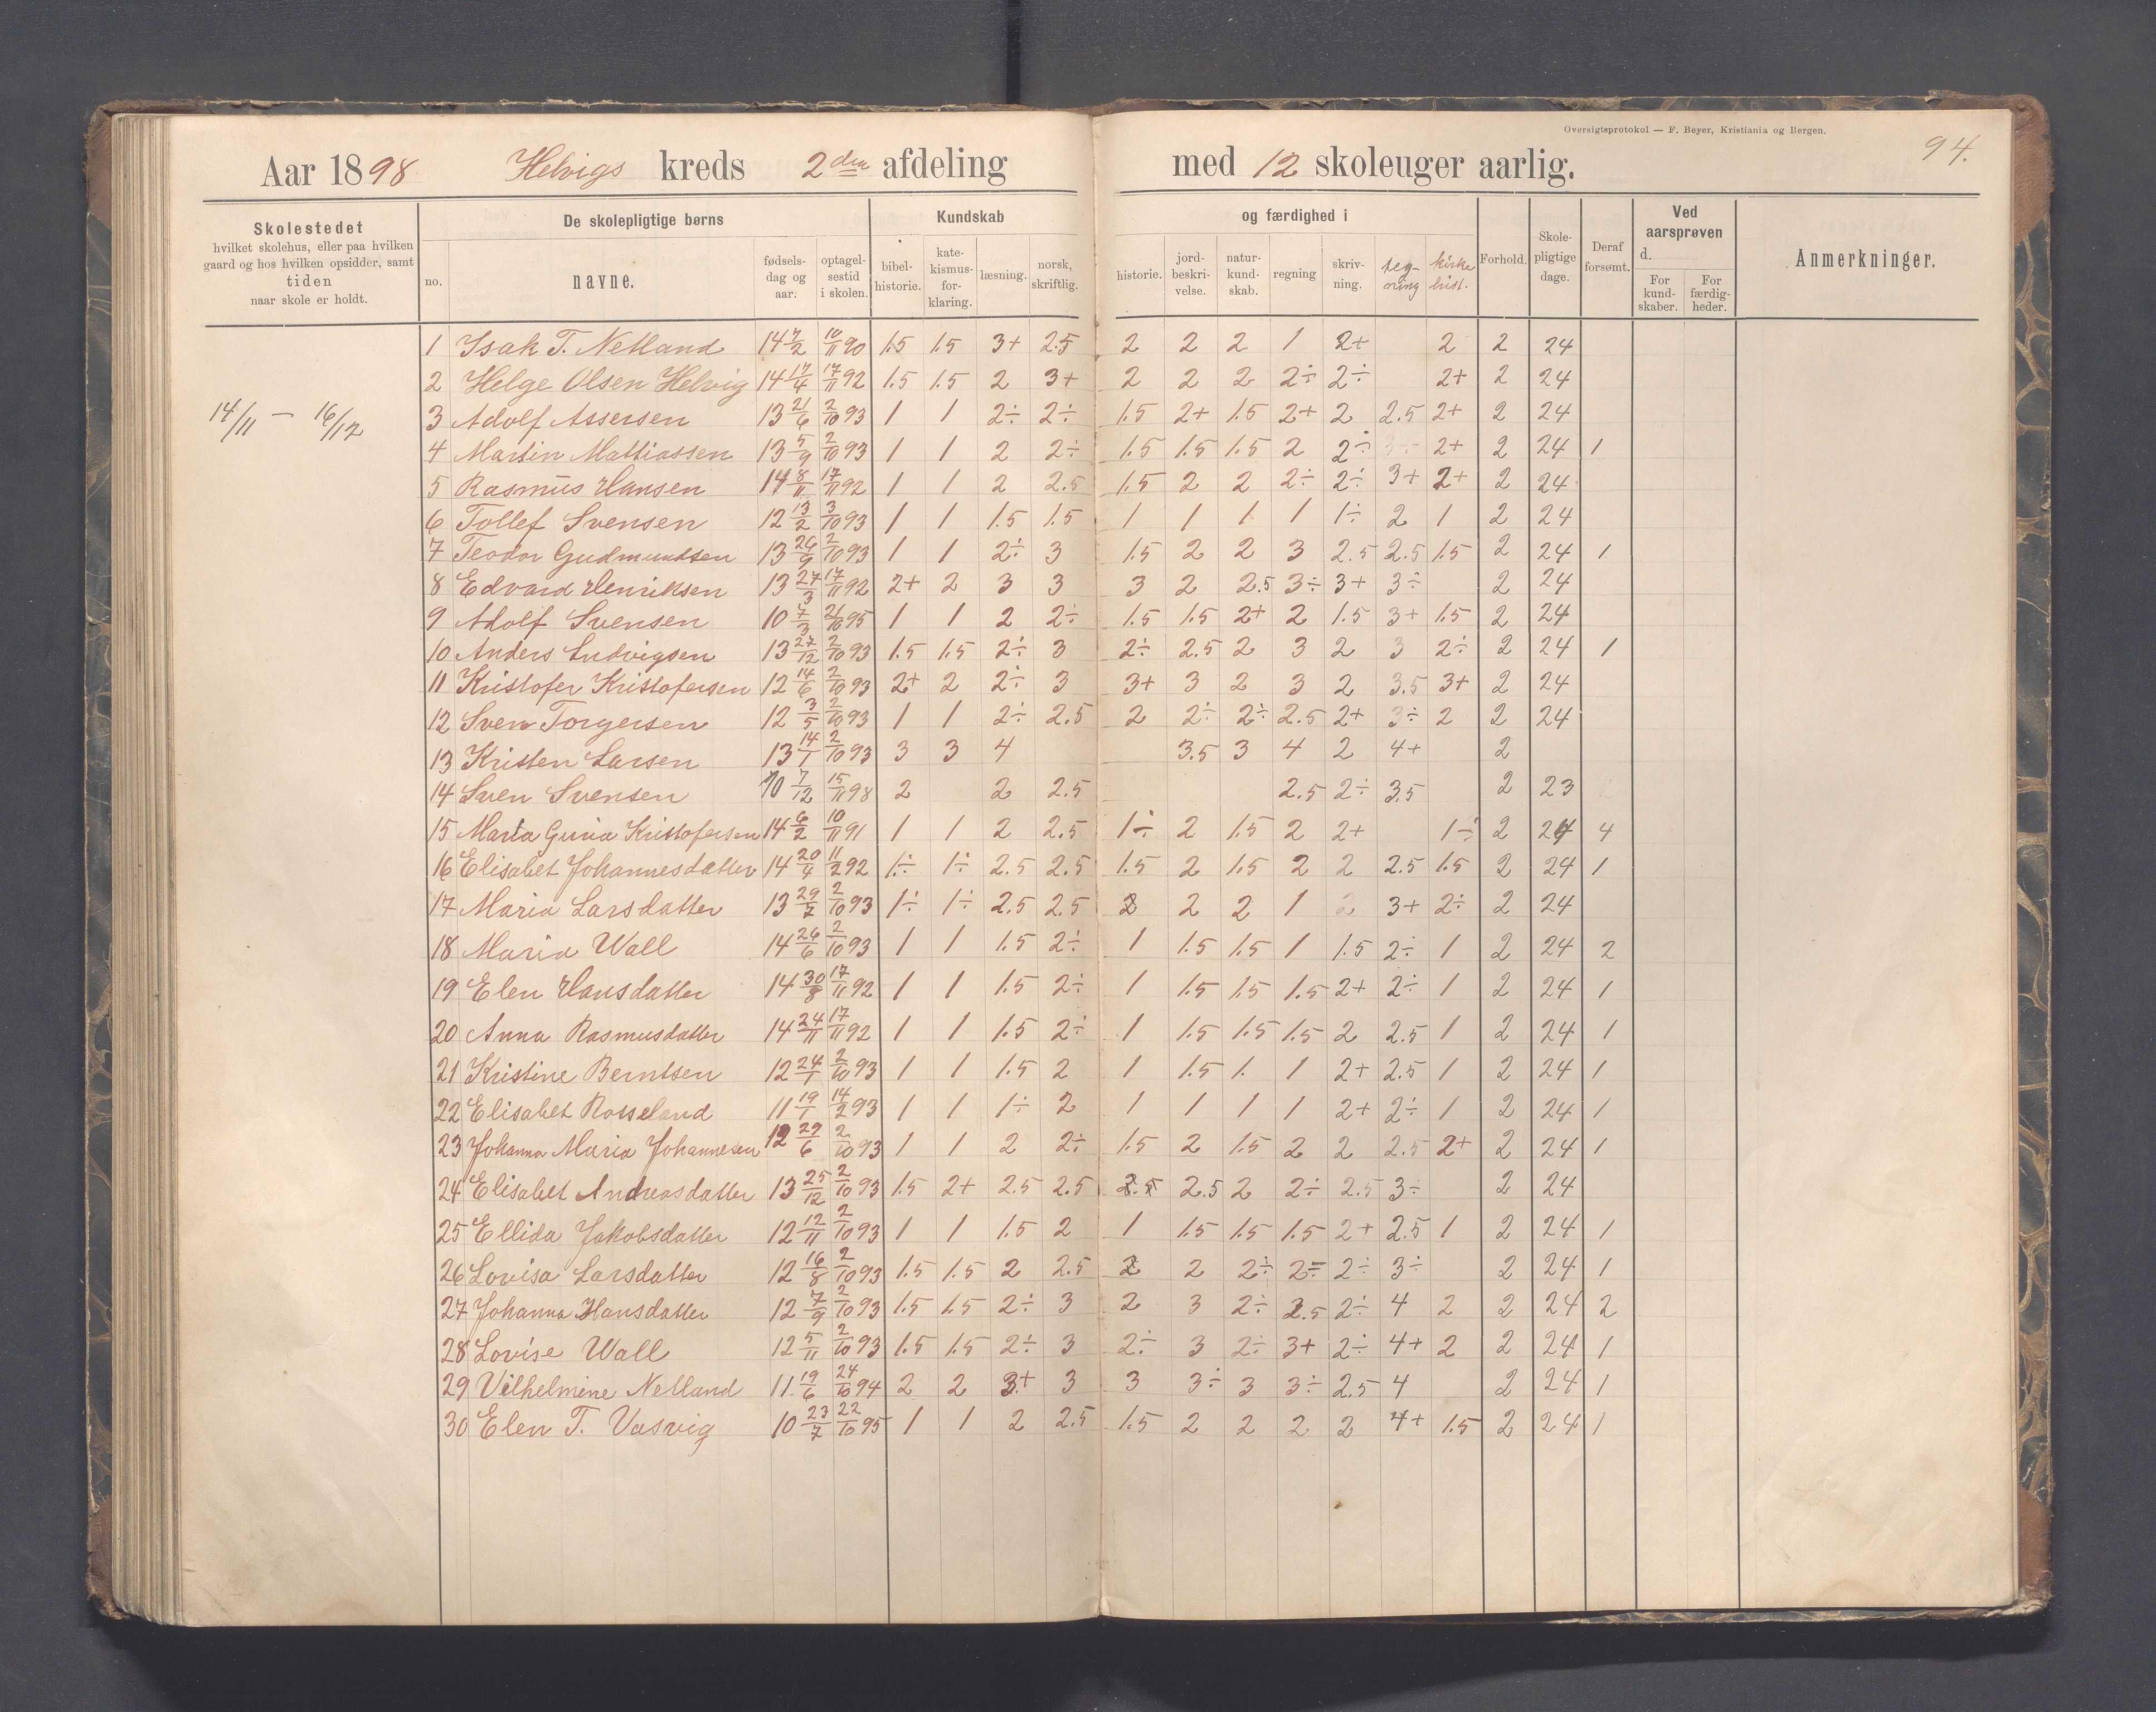 Oversigtsprotokol — F. Beyer, Kristiania og Bergen.
94.
Aar 1898 Helvigs kreds 2den afdeling med 12 skoleuger aarlig.
Skolestedet
hvilket skolehus, eller paa hvilken
gaard og hos hvilken opsidder, samt
tiden
naar skole er holdt.
De skolepligtige børns
no.
navne.
fødsels-
dag og
aar.
optagel-
sestid
i skolen.
Kundskab
bibel-
historie.
kate-
kismus-
for-
klaring.
læsning.
norsk,
skriftlig.
og færdighed i
historie.
jord-
beskri-
velse.
natur-
kund-
skab.
regning
skriv-
ning.
teg-
ning
kirke
hist.
Forhold.
Skole-
pligtige
dage.
Deraf
forsømt.
Ved
aarsprøven
d.
For
kund-
skaber.
For
færdig-
heder.
Anmerkninger.
14/11 — 16/12
1 Isak T. Netland 14 7/2 10/11 90 1.5 1.5 3+ 2.5 2 2 2 1 2+ 2 2 24
2 Helge Olsen Helvig 14 17/4 17/11 92 1.5 1.5 2 3+ 2 2 2 2÷ 2÷ 2+ 2 24
3 Adolf Assersen 13 21/6 2/10 93 1 1 2÷ 2÷ 1.5 2+ 1.5 2+ 2 2.5 2+ 2 24
4 Martin Mattiassen 13 5/9 2/10 93 1 1 2 2÷ 1.5 1.5 1.5 2 2÷ 3÷ 2+ 2 24 1
5 Rasmus Hansen 14 8/11 17/11 92 1 1 2 2.5 1.5 2 2 2÷ 2÷ 3+ 2+ 2 24
6 Tollef Svensen 12 13/2 3/10 93 1 1 1.5 1.5 1 1 1 1 1÷ 2 1 2 24
7 Teodor Gudmundsen 13 26/9 2/10 93 1 1 2÷ 3 1.5 2 2 3 2.5 2.5 1.5 2 24 1
8 Edvard Henriksen 13 27/3 17/11 92 2+ 2 3 3 3 2 2.5 3÷ 3+ 3÷ 2 24
9 Adolf Svensen 10 7/3 21/10 95 1 1 2 2÷ 1.5 1.5 2+ 2 1.5 3+ 1.5 2 24
10 Anders Ludvigsen 13 27/12 2/10 93 1.5 1.5 2÷ 3 2÷ 2.5 2 3 2 3 2÷ 2 24 1
11 Kristofer Kristofersen 12 14/6 2/10 93 2+ 2 2÷ 3 3+ 3 2 3 2 3.5 3+ 2 24
12 Sven Torgersen 12 3/5 2/10 93 1 1 2÷ 2.5 2 2÷ 2÷ 2.5 2+ 3÷ 2 2 24
13 Kristen Larsen 13 14/1 2/10 93 3 3 4 3.5 3 4 2 4+ 2
14 Sven Svensen 10 7/12 15/11 98 2 2 2.5 2.5 2÷ 3.5 2 23
15 Marta Guria Kristofersen 14 6/2 10/11 91 1 1 2 2.5 1÷ 2 1.5 2 2+ 1÷ 2 24 4
16 Elisabet Johannesdatter 14 20/4 11/2 92 1÷ 1÷ 2.5 2.5 1.5 2 1.5 2 2 2.5 1.5 2 24 1
17 Maria Larsdatter 13 29/7 2/10 93 1÷ 1÷ 2.5 2.5 2 2 2 1 2 3+ 2÷ 2 24
18 Maria Wall 14 26/6 2/10 93 1 1 1.5 2÷ 1 1.5 1.5 1 1.5 2÷ 1 2 24 2
19 Elen Hansdatter 14 30/8 17/11 92 1 1 1.5 2÷ 1 1.5 1.5 1.5 2+ 2÷ 1 2 24 1
20 Anna Rasmusdatter 14 24/11 17/11 92 1 1 1.5 2÷ 1 1.5 1.5 1.5 2 2.5 1 2 24 1
21 Kristine Berntsen 12 24/1 2/10 93 1 1 1.5 2 1 1.5 1. 1 2+ 2.5 1 2 24 1
22 Elisabet Rosseland 11 19/1 14/2 93 1 1 1÷ 2 1 1 1 1 2+ 2÷ 1 2 24 1
23 Johanna Maria Johannesen 12 29/6 2/10 93 1 1 2 2÷ 1.5 2 1.5 2 2 2.5 2+ 2 24 1
24 Elisabet Andreasdatter 13 25/12 2/10 93 1.5 2+ 2.5 2.5 2.5 2.5 2 2÷ 2.5 3÷ 2 24
25 Ellida Jakobsdatter 12 12/11 2/10 93 1 1 1.5 2 1 1.5 1.5 1.5 2+ 2.5 1 2 24 1
26 Lovisa Larsdatter 12 16/8 2/10 93 1.5 1.5 2 2.5 2 2 2÷ 2÷ 2÷ 3÷ 2 24 1
27 Johanna Hansdatter 12 7/9 2/10 93 1.5 1.5 2÷ 3 2 3 2÷ 2.5 2÷ 4 2 2 24 2
28 Lovise Wall 12 5/11 2/10 93 1.5 1.5 2÷ 3 2÷ 3 2÷ 3+ 2÷ 4+ 2 2 24 1
29 Vilhelmine Netland 11. 19/6 24/10 94 2 2 3+ 3 3 3÷ 3 3÷ 2.5 4 2 24 1
30 Elen T. Vasvig 10 23/7 22/10 95 1 1 2 2.5 1.5 2 2 2 2 4+ 1.5 2 24 1